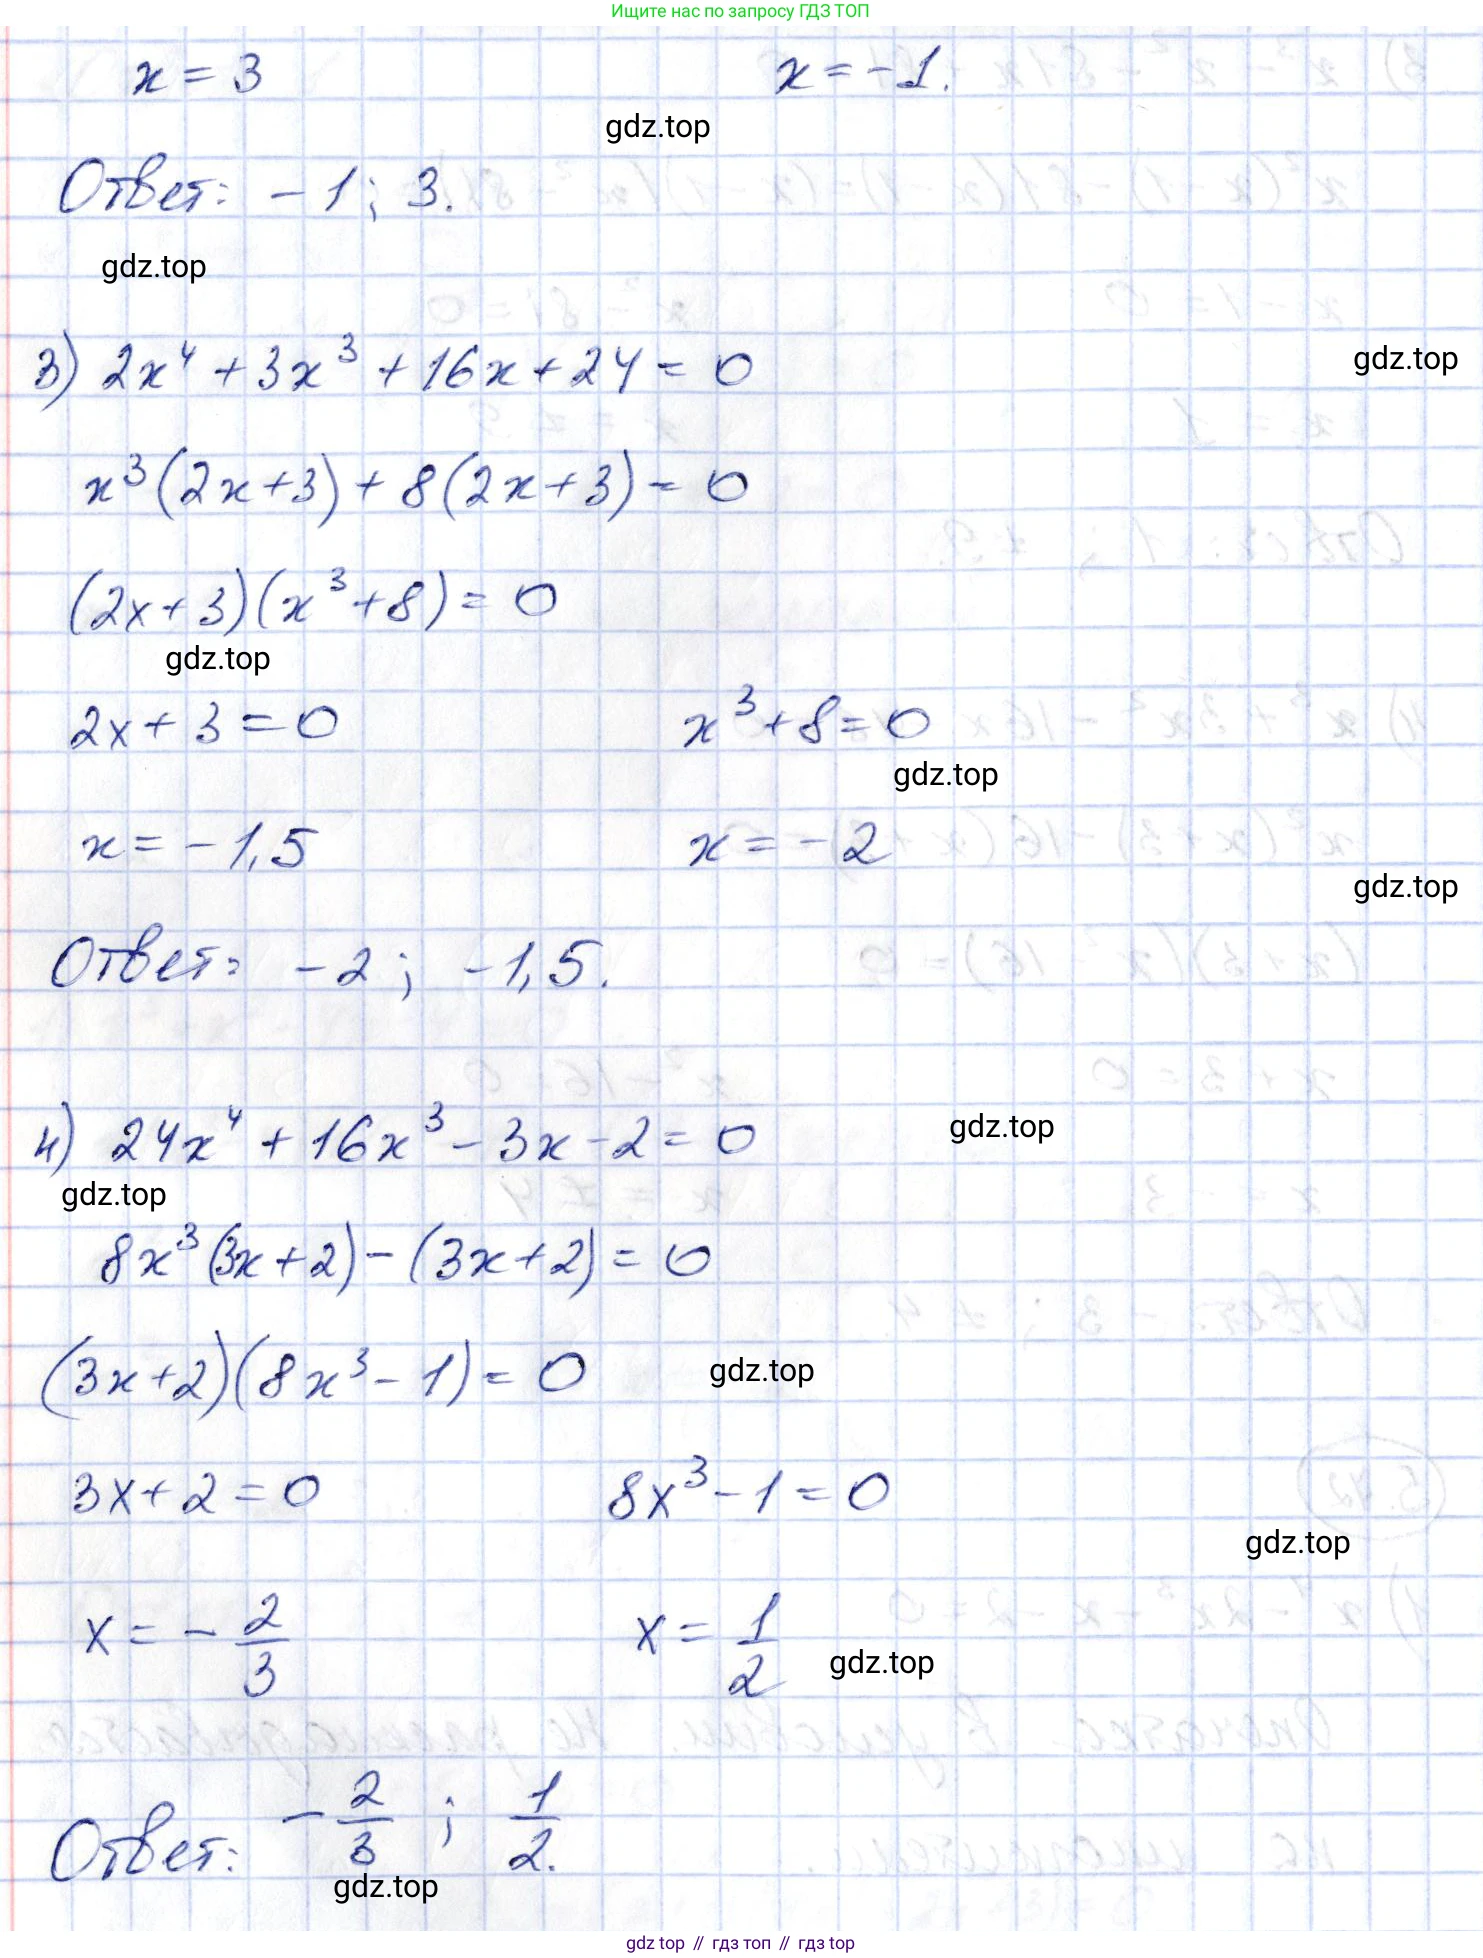 Ищите нас по запросу ГДЗ ТОП
x = 3 x = -1.
gdz.top
Ответ: -1; 3.
gdz.top
3) 2x⁴ + 3x³ + 16x + 24 = 0
gdz.top
x³(2x+3) + 8(2x+3) = 0
(2x+3)(x³+8) = 0
gdz.top
2x + 3 = 0 x³ + 8 = 0
gdz.top
x = -1,5 x = -2
gdz.top
Ответ: -2; -1,5.
4) 24x⁴ + 16x³ - 3x - 2 = 0
gdz.top
gdz.top
8x³(3x+2) - (3x+2) = 0
(3x+2)(8x³ - 1) = 0
gdz.top
3x + 2 = 0 8x³ - 1 = 0
gdz.top
x = -2/3 x = 1/2
gdz.top
Ответ: -2/3; 1/2.
gdz.top
gdz top // гдз топ // гдз top